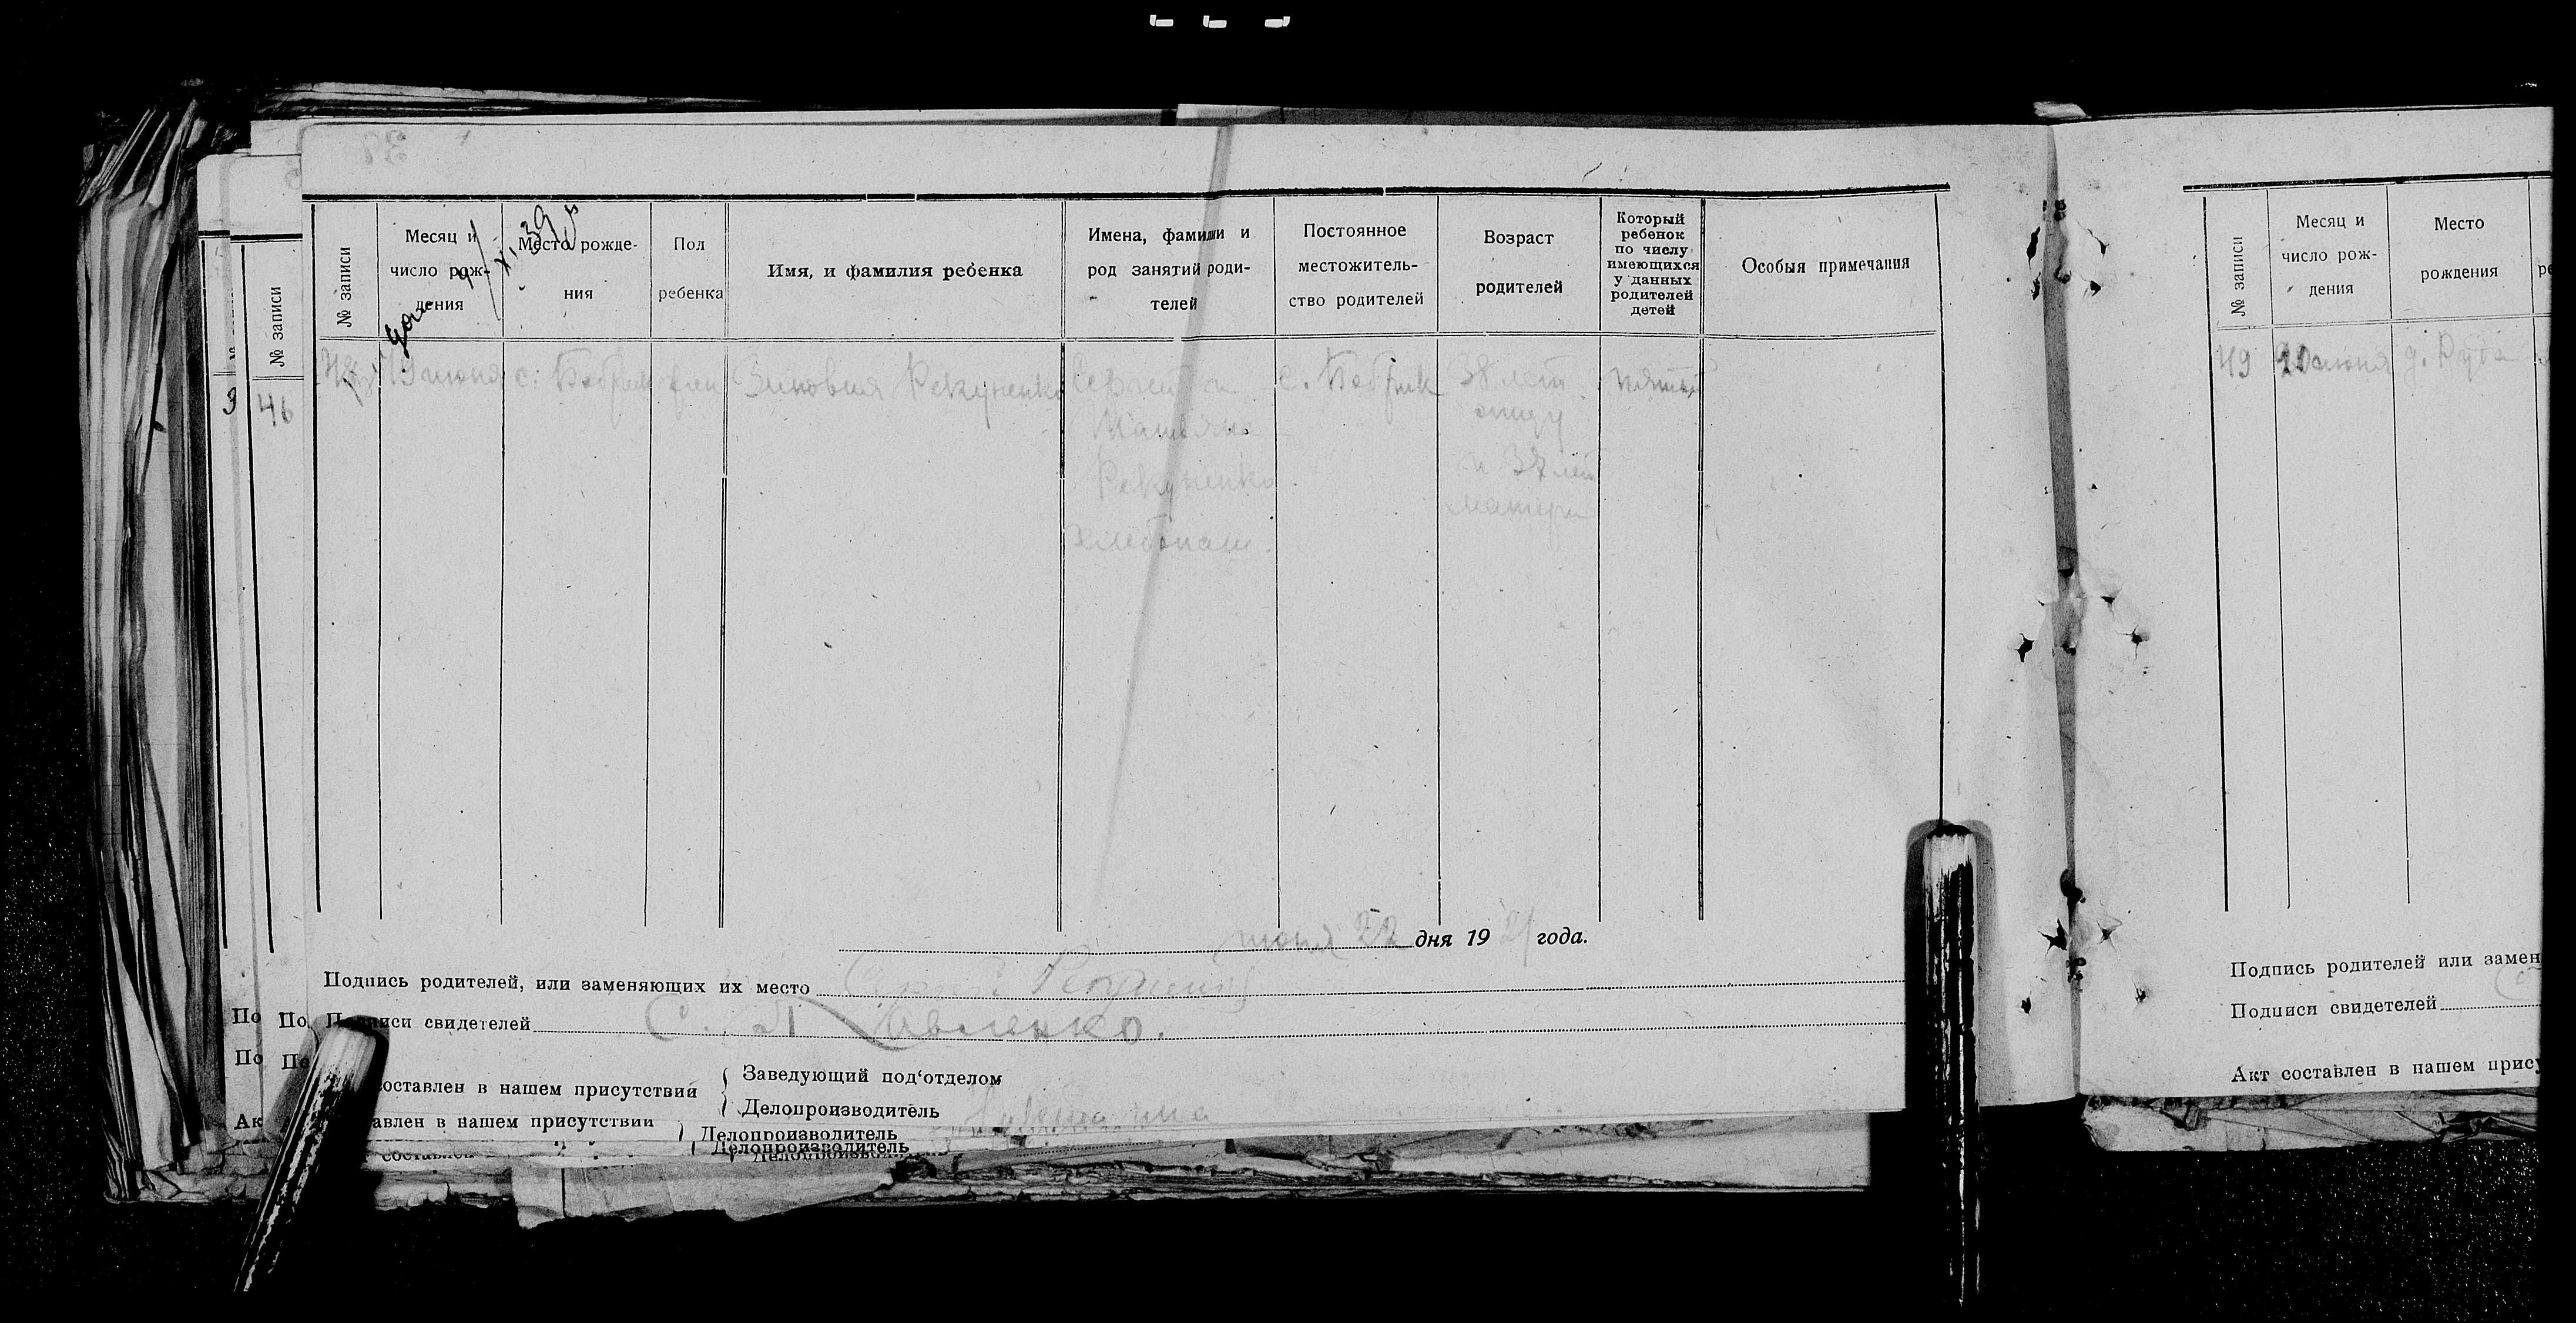 № записи
Месяц и число рождения
Место рождения
Пол ребенка
Имя, и фамилия ребенка
Имена, фамилии и род занятий родителей
Постоянное местожительство родителей
Возраст родителей
Который ребенок по числу имеющихся у данных родителей детей
Особыя примечания
48 19 июня с. Бобрик жен Зиновия Рекуненко Сергей и с. Бобрик 38 лет пятый
отцу
Рекуненко и 37 лет
матери
хлебопаш.
июня 22 дня 19 21 года.
Подпись родителей, или заменяющих их место Сергей
Подписи свидетелей
составлен в нашем присутствии
Заведующий под'отделом
Делопроизводитель
авлен в нашем присутствии
Делопроизводитель
Делопроизводитель
№ записи
46
По
По
По
По
Ак
№ записи
Месяц и число рождения
Место рождения
49 20 июня д. Руда
Подпись родителей или замен
Подписи свидетелей
Акт составлен в нашем прису